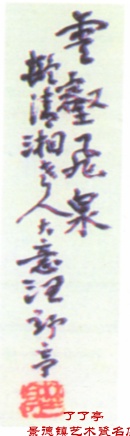 雲壑飛泉
擬清湘老人大意汪野亭
了了亭
景德镇艺术瓷名